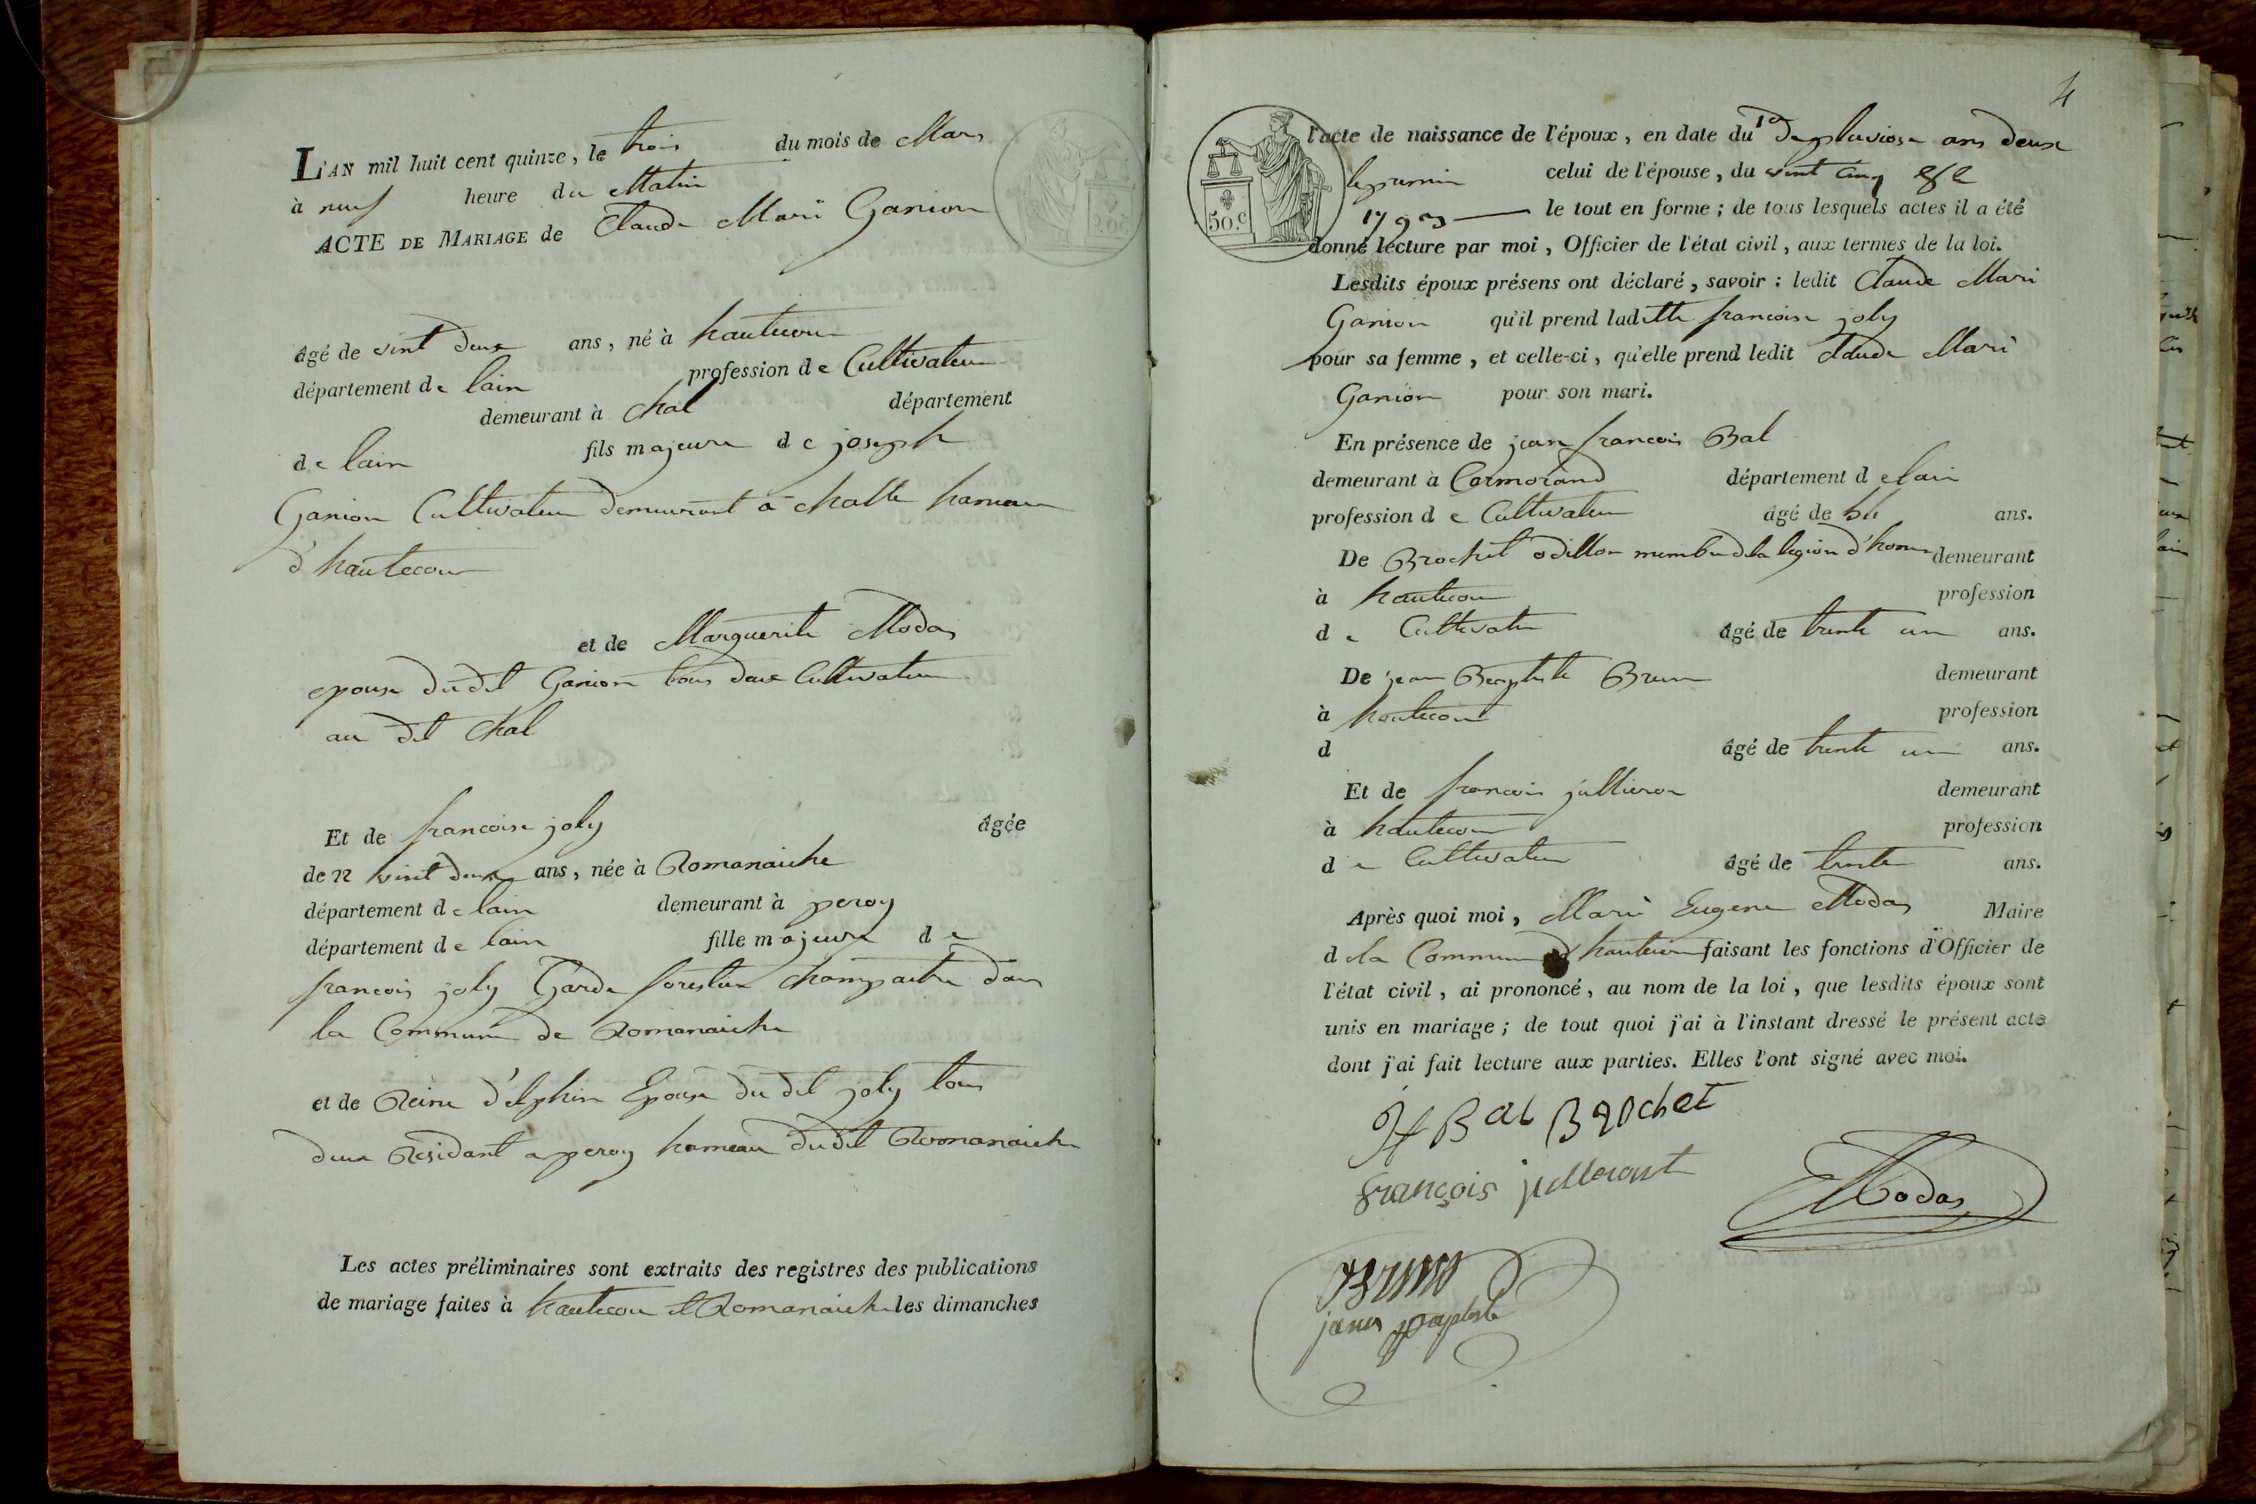 L'AN mil huit cent quinze, le trois du mois de Mars
à neuf heure du Matin
ACTE DE MARIAGE de Claude Marie Ganion
âgé de vint deux ans, né à hautecour
département de lain profession de Cultivateur
demeurant à Chal département
de lain fils majeure de joseph
Ganion Cultivateur demeurant a challe hameau
d'hautecour
et de Marguerite Modas
epouse du dit Ganion tous deux Cultivateur
au dit Chal
Et de francoise joly âgée
de 22 vint deux ans, née à Romanaiche
département de lain demeurant à peroy
département de lain fille majeure de
francois joly Garde forestier champaitre dans
la Commune de Romanaiche
et de Reine d'elphin Epouse du dit joly tous
deux Résidant a peroy hameau dudit Romanaiche
Les actes préliminaires sont extraits des registres des publications
de mariage faites à hautecour et Romanaiche les dimanches
4
50.c
l'acte de naissance de l'époux, en date du de pluviose ans deux
celui de l'épouse, du vint cinq
1793 le tout en forme; de tous lesquels actes il a été
donné lecture par moi, Officier de l'état civil, aux termes de la loi.
Lesdits époux présens ont déclaré, savoir : ledit Claude Marie
Ganion qu'il prend laditte francoise joly
pour sa femme, et celle-ci, qu'elle prend ledit Claude Marie
Ganion pour son mari.
En présence de jean francois Bal
demeurant à Cormorand département de lain
profession de Cultivateur âgé de ans.
De Brochet odillon membre de la legion d'honneur demeurant
à hautecour profession
de Cultivateur âgé de trente un ans.
De jean Baptiste Brun demeurant
à hautecour profession
d âgé de trente un ans.
Et de francois jullieron demeurant
à hautecour profession
de Cultivateur âgé de trente ans.
Après quoi moi, Marie Eugene Modas Maire
de la Commune d'hautecour faisant les fonctions d'Officier de
l'état civil, ai prononcé, au nom de la loi, que lesdits époux sont
unis en mariage; de tout quoi j'ai à l'instant dressé le présent acte
dont j'ai fait lecture aux parties. Elles l'ont signé avec moi.
Jf Bal Brochet
françois
Modas
Brun